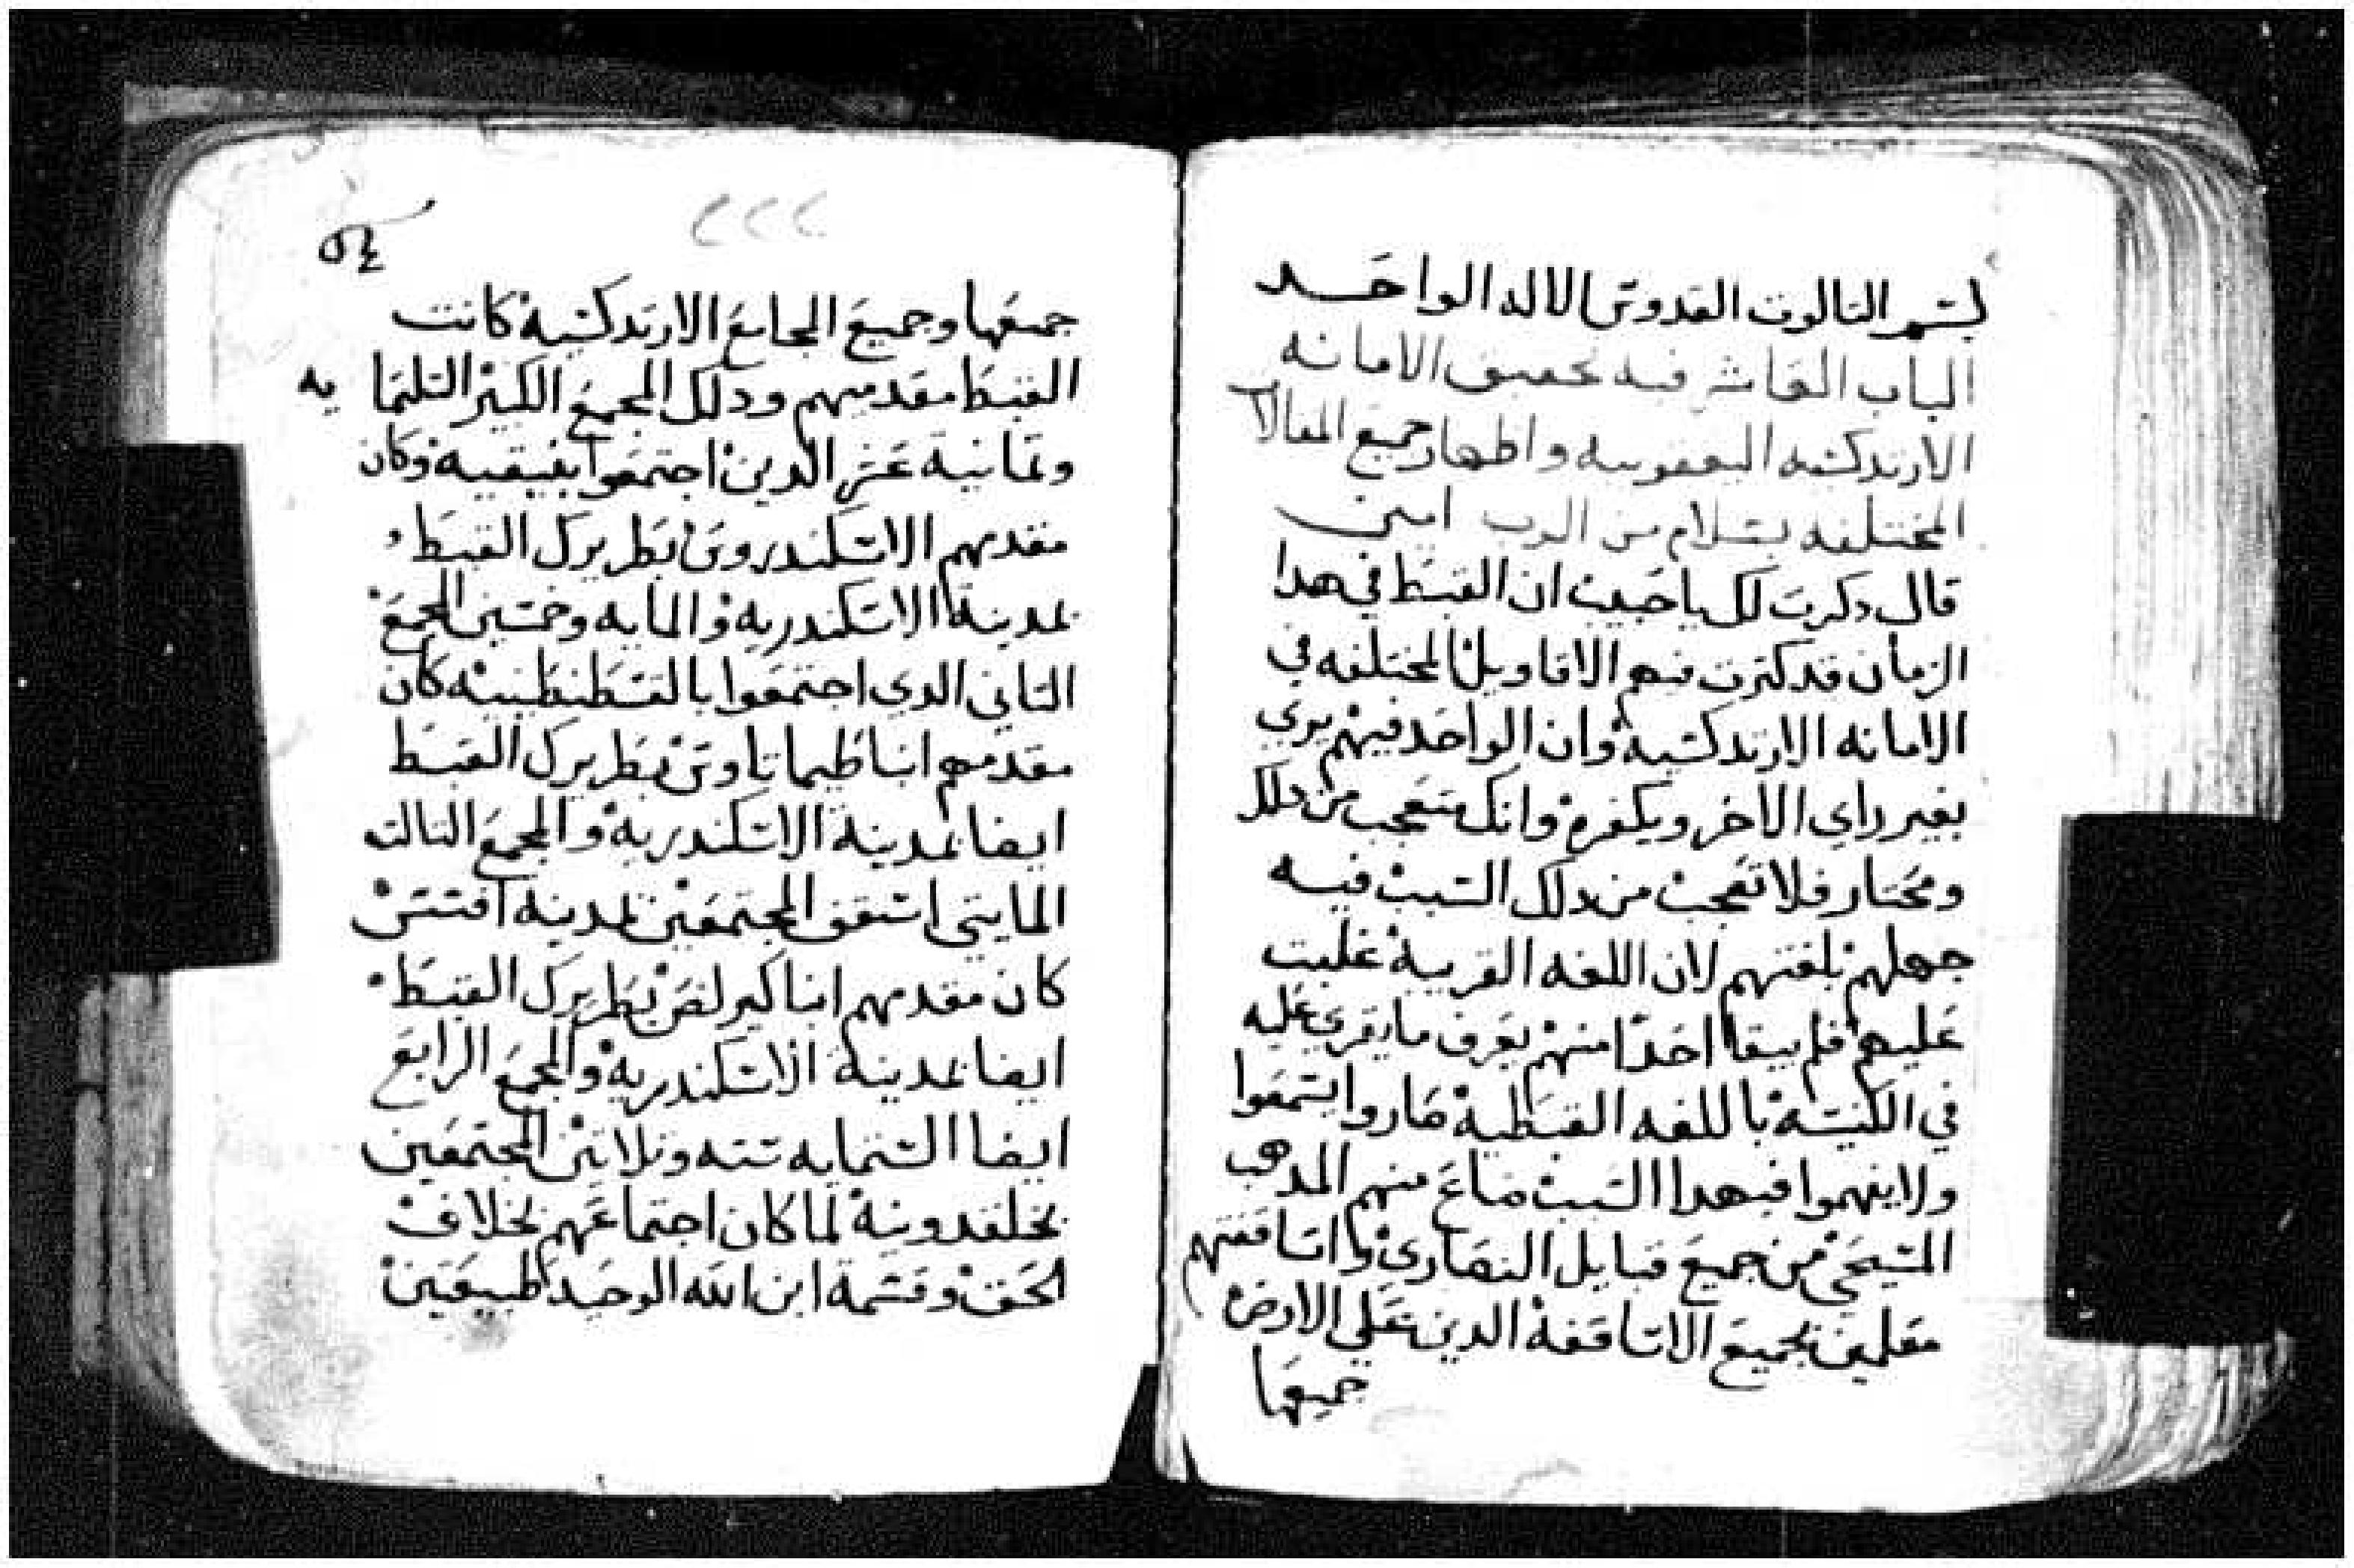 بسم التالوت القدوس الاله الواحد
الباب العاشر فيه تحقيق الامانه
الارتدكسيه اليعقوبيه واظهار جميع المقالات
المختلفه بسلام من الرب امين
قال دكرت لك يا حبيب ان القبط في هدا
الزمان قد كترت فيهم الاقاويل المختلفه في
الامانه الارتدكسية وان الواحد فيهم يري
بغير راي الاخر ويكفره وانك متعجب من دلك
ومحتار فلا تعجب من دلك السبب فيه
جهلهم بلغتهم لان اللغه العربية غلبت
عليهم فلم يبقا احدا منهم يعرف ما يقري عليه
في الكنيسة باللغه القبطية صاروا يسمعوا
ولا يفهموا فبهدا السبب ضاع منهم المدهب
المسيحي من جميع قبايل النصاري واساقفتهم
معلمين بجميع الاساقفة الدين علي الارض
جميعها
٢٢٢
جميعها وجميع المجامع الارتدكسية كانت
القبط مقدميهم ودلك المجمع الكبير التلتما يه
وتمانية عشر الدين اجتمعوا بنيقيه وكان
مقدمهم الاسكندروس بطريرك القبط
بمدينة الاسكندرية والمايه وخمسين المجمع
التاني الدي اجتمعوا بالقسطنطينيه كان
مقدمهم انبا طيماتاوس بطريرك القبط
ايضا بمدينة الاسكندرية والمجمع التالت
المايتي اسقف المجتمعين بمدينه افسس
كان مقدمهم انبا كيرلص بطريرك القبط
ايضا بمدينة الاسكندرية والمجمع الرابع
ايضا الستمايه سته وتلاتين المجتمعين
بخلقدونية لما كان اجتماعهم بخلاف
الحق وقسمة ابن الله الوحيد طبيعتين